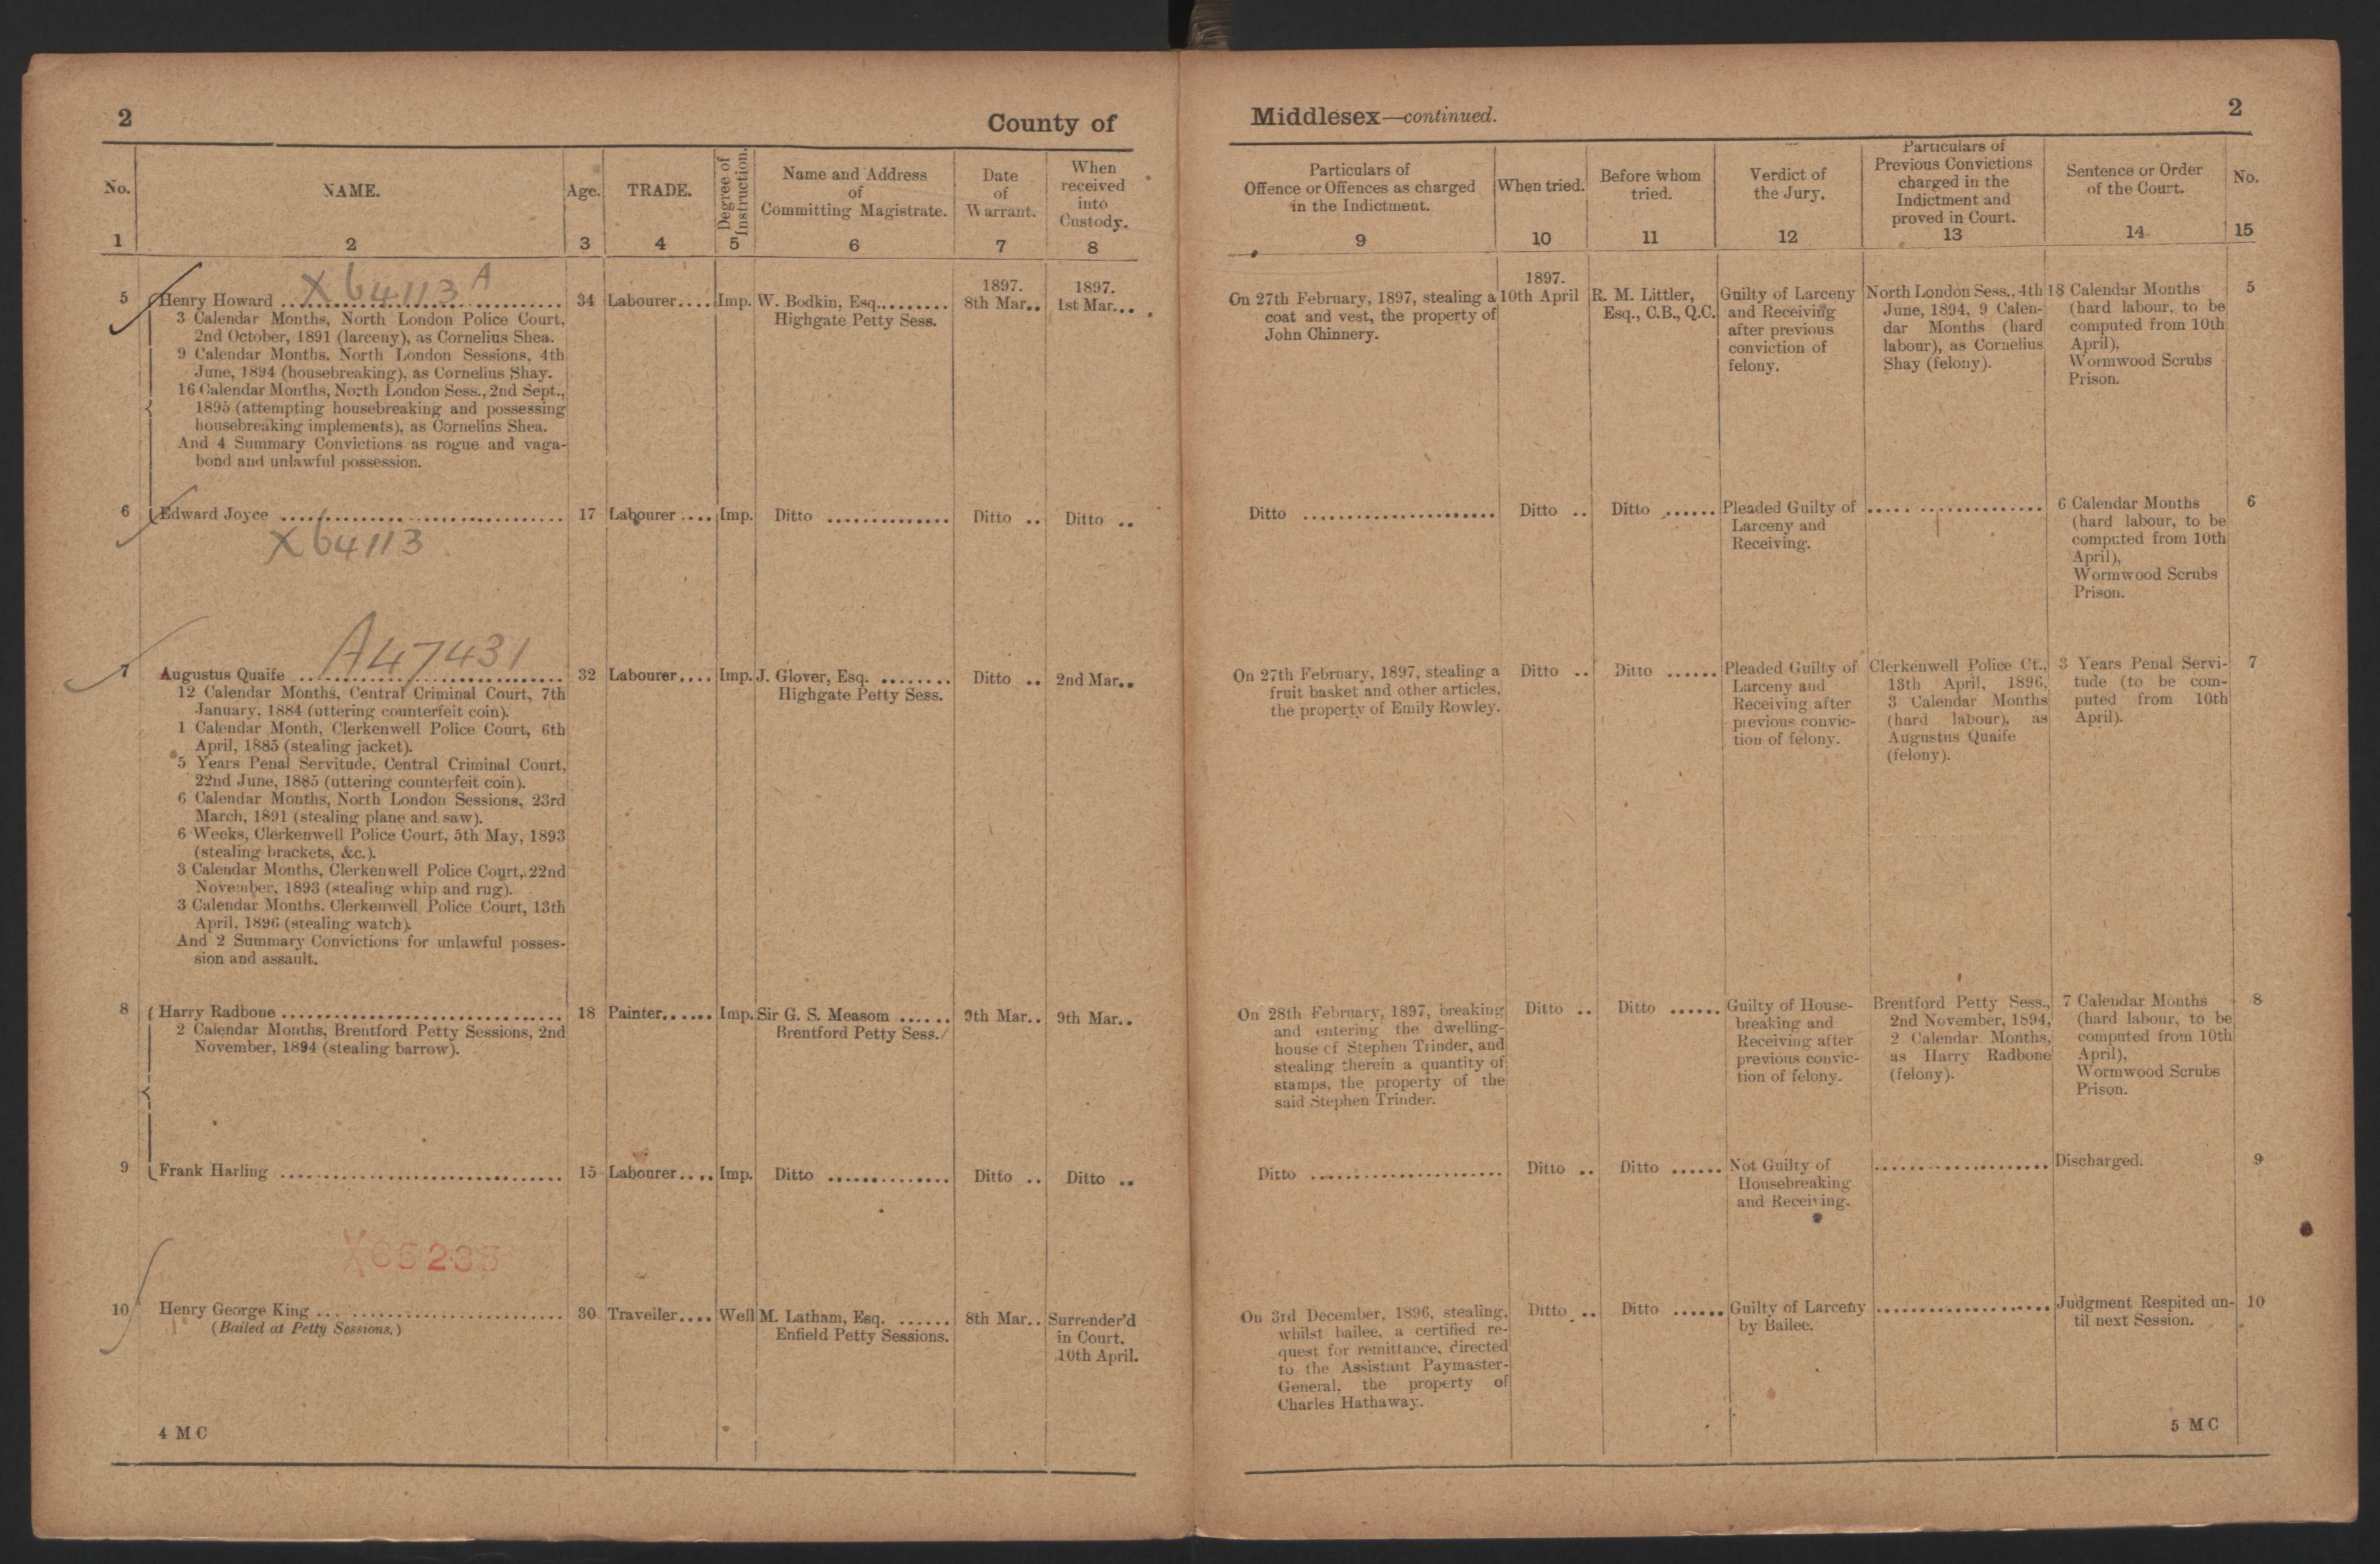 2
County of
No.
NAME.
Age.
TRADE.
Degree of
Instruction.
Name and Address
of
Committing Magistrate.
Date
of
Warrant.
When
received
into
Custody.
1
2
3
4
5
6
7
8
5
Henry Howard
X64113A
34
Labourer
Imp.
W. Bodkin, Esq.
Highgate Petty Sess.
1897.
8th Mar.
1897.
1st Mar.
3 Calendar Months, North London Police Court,
2nd October, 1891 (larceny), as Cornelius Shea.
9 Calendar Months, North London Sessions, 4th
June, 1894 (housebreaking), as Cornelius Shay.
16 Calendar Months, North London Sess., 2nd Sept.,
1895 (attempting housebreaking and possessing
housebreaking implements), as Cornelius Shea.
And 4 Summary Convictions as rogue and vaga-
bond and unlawful possession.
6
Edward Joyce
17
Labourer
Imp.
Ditto
Ditto
Ditto
X64113
A47431
7
Augustus Quaife
32
Labourer
Imp.
J. Glover, Esq.
Highgate Petty Sess.
Ditto
2nd Mar.
12 Calendar Months, Central Criminal Court, 7th
January, 1884 (uttering counterfeit coin).
1 Calendar Month, Clerkenwell Police Court, 6th
April, 1885 (stealing jacket).
5 Years Penal Servitude, Central Criminal Court,
22nd June, 1885 (uttering counterfeit coin).
6 Calendar Months, North London Sessions, 23rd
March, 1891 (stealing plane and saw).
6 Weeks, Clerkenwell Police Court, 5th May, 1893
(stealing brackets, &c.).
3 Calendar Months, Clerkenwell Police Court, 22nd
November, 1893 (stealing whip and rug).
3 Calendar Months, Clerkenwell Police Court, 13th
April, 1896 (stealing watch).
And 2 Summary Convictions for unlawful posses-
sion and assault.
8
Harry Radbone
18
Painter
Imp.
Sir G. S. Measom
Brentford Petty Sess.
9th Mar.
9th Mar.
2 Calendar Months, Brentford Petty Sessions, 2nd
November, 1894 (stealing barrow).
9
Frank Harling
15
Labourer
Imp.
Ditto
Ditto
Ditto
X65235
10
Henry George King
(Bailed at Petty Sessions.)
30
Traveller
Well
M. Latham, Esq.
Enfield Petty Sessions.
8th Mar.
Surrender'd
in Court,
10th April.
4 M C
Middlesex—continued.
2
Particulars of
Offence or Offences as charged
in the Indictment.
When tried.
Before whom
tried.
Verdict of
the Jury.
Particulars of
Previous Convictions
charged in the
Indictment and
proved in Court.
Sentence or Order
of the Court.
No.
9
10
11
12
13
14
15
On 27th February, 1897, stealing a
coat and vest, the property of
John Chinnery.
1897.
10th April
R. M. Littler,
Esq., C.B., Q.C.
Guilty of Larceny
and Receiving
after previous
conviction of
felony.
North London Sess., 4th
June, 1894, 9 Calen-
dar Months (hard
labour), as Cornelius
Shay (felony).
18 Calendar Months
(hard labour, to be
computed from 10th
April),
Wormwood Scrubs
Prison.
5
Ditto
Ditto
Ditto
Pleaded Guilty of
Larceny and
Receiving.
6 Calendar Months
(hard labour, to be
computed from 10th
April),
Wormwood Scrubs
Prison.
6
On 27th February, 1897, stealing a
fruit basket and other articles,
the property of Emily Rowley.
Ditto
Ditto
Pleaded Guilty of
Larceny and
Receiving after
previous convic-
tion of felony.
Clerkenwell Police Ct.,
13th April, 1896,
3 Calendar Months
(hard labour), as
Augustus Quaife
(felony).
3 Years Penal Servi-
tude (to be com-
puted from 10th
April).
7
On 28th February, 1897, breaking
and entering the dwelling-
house of Stephen Trinder, and
stealing therein a quantity of
stamps, the property of the
said Stephen Trinder.
Ditto
Ditto
Guilty of House-
breaking and
Receiving after
previous convic-
tion of felony.
Brentford Petty Sess.,
2nd November, 1894,
2 Calendar Months,
as Harry Radbone
(felony).
7 Calendar Months
(hard labour, to be
computed from 10th
April),
Wormwood Scrubs
Prison.
8
Ditto
Ditto
Ditto
Not Guilty of
Housebreaking
and Receiving.
Discharged.
9
On 3rd December, 1896, stealing,
whilst bailee, a certified re-
quest for remittance, directed
to the Assistant Paymaster-
General, the property of
Charles Hathaway.
Ditto
Ditto
Guilty of Larceny
by Bailee.
Judgment Respited un-
til next Session.
10
5 M C